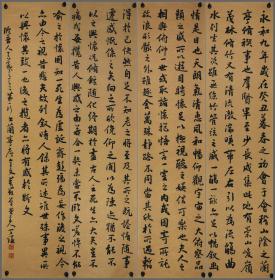 永和九年歲在癸丑暮春之初會于會稽山陰之蘭
亭脩禊事也群賢畢至少長咸集此地有崇山峻領
茂林脩竹又有清流激湍映帶左右引以為流觴曲
水列坐其次雖無絲竹管弦之盛一觴一詠亦足以暢敘幽
情是日也天朗氣清惠風和暢仰觀宇宙之大俯察品
類之盛所以遊目騁懷足以極視聽之娛信可樂也夫人之
相與俯仰一世或取諸懷抱悟言一室之內或因寄所託
放浪形骸之外雖趣舍萬殊靜躁不同當其欣於所遇暫
得於己快然自足不知老之將至及其所之既惓情隨事
遷感慨係之矣向之所欣俛仰之間以為陳迹猶不能不
以之興懷況脩短隨化終期於盡古人云死生亦大矣豈不
痛哉每攬昔人興感之由若合一契未嘗不臨文嗟悼不能
喻之於懷固知一死生為虛誕齊彭殤為妄作後之視今亦
由今之視昔悲夫故列敘時人錄其所述雖世殊事異所
以興懷其致一也後之攬者亦將有感於斯文